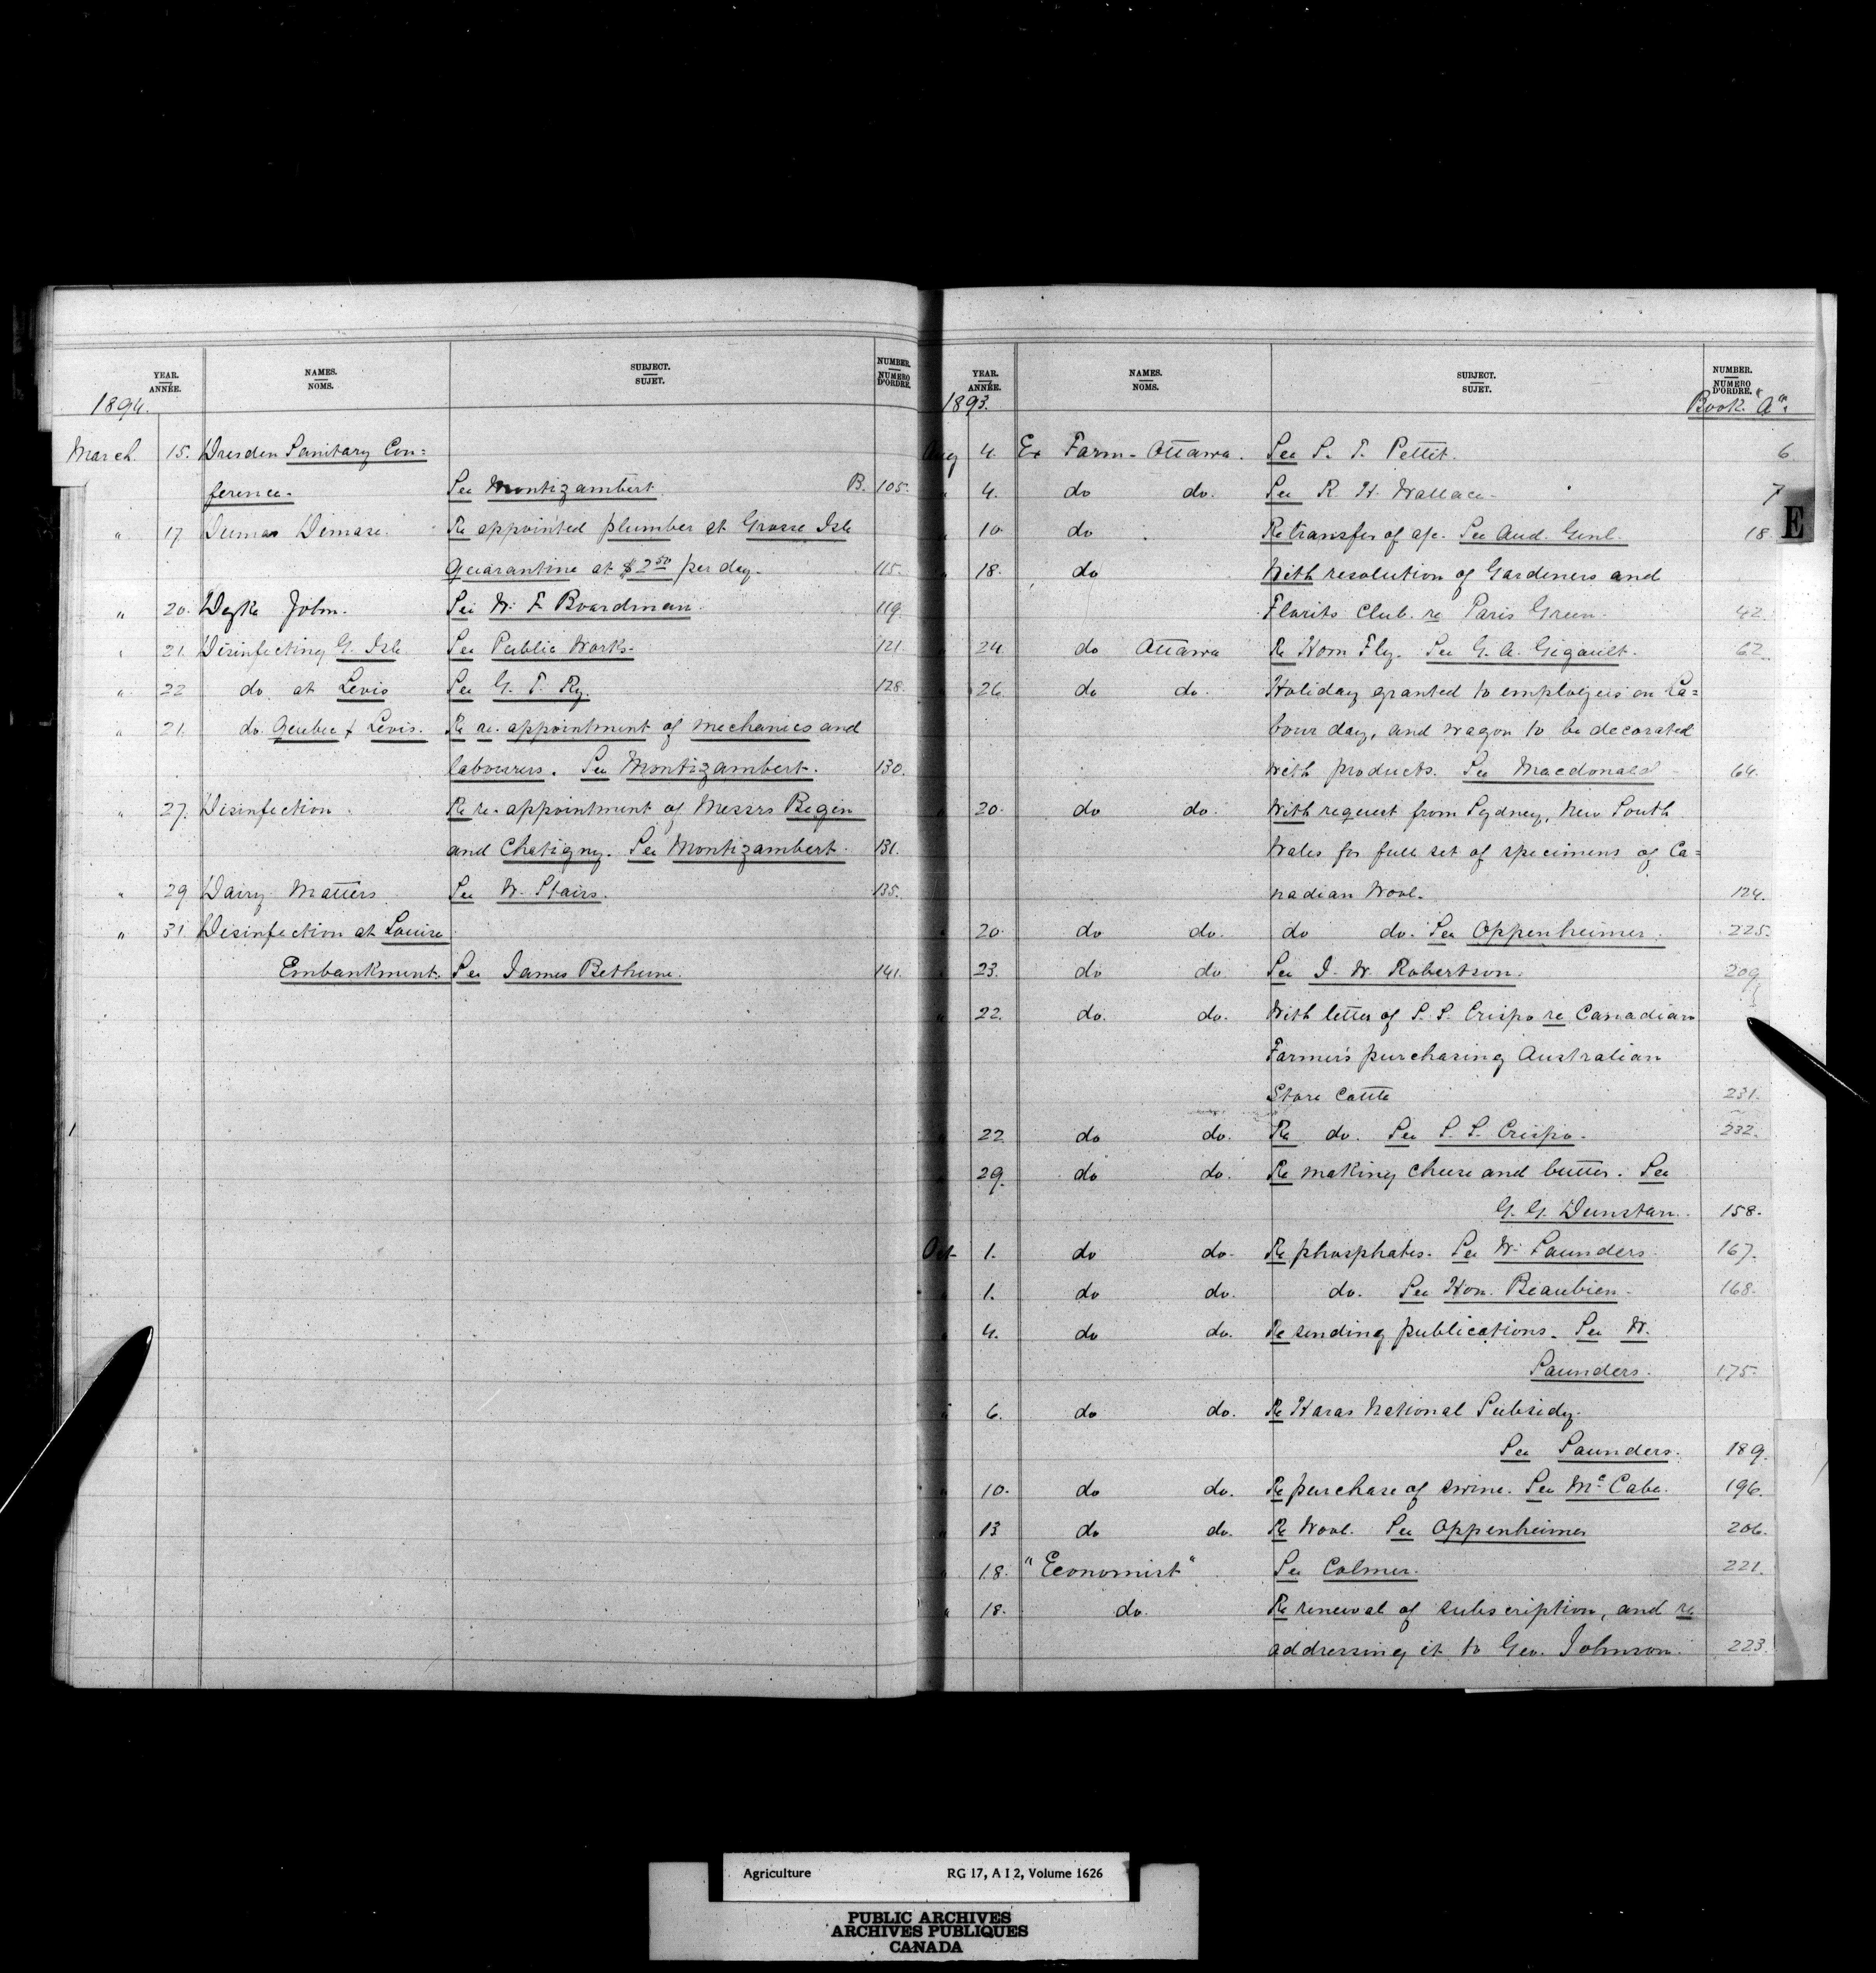 YEAR.
ANNÉE.
NAMES.
NOMS.
SUBJECT.
SUJET.
NUMBER.
NUMERO
D'ORDRE.
1894.
March. 15. Dresden Sanitary Con=
ference. See Montizambert. B. 105.
" 17 Dumas Démase. Re appointed plumber at Grosse Isle
Quarantine at $2.50 per day. 115.
" 20. Deyke John. See W. F. Boardman. 119.
" 21. Disinfecting G. Isle See Public Works. 121.
" 22 do. at Levis See G. T. Ry. 128.
" 21. do. Quebec & Levis. Re re-appointment of mechanics and
labourers. See Montizambert. 130.
" 27. Disinfection. Re re-appointment of Messrs Begin
and Chatigny. See Montizambert. 131.
" 29 Dairy Matters. See W. Stairs. 135.
" 31. Disinfection at Louise
Embankment. See James Bethune. 141.
YEAR.
ANNÉE.
NAMES.
NOMS.
SUBJECT.
SUJET.
NUMBER.
NUMERO
D'ORDRE.
1893. Book "A".
Aug 4. Ex Farm - Ottawa. See S. T. Pettit. 6
" 4. do do. See R. H. Wallace. 7
E
" 10. do Re transfer of a/c. See Aud. Genl. 18
" 18. do With resolution of Gardeners and
Florits Club. re Paris Green. 42.
" 24 do Ottawa Re Horn Fly. See G. A. Gigault. 62.
" 26. do do. Holiday granted to employees on La=
bour day, and wagon to be decorated
with products. See Macdonald 64.
" 20. do do. With request from Sydney, New South
Wales for full set of specimens of Ca=
nadian Wool. 124.
" 20. do do. do do. See Oppenheimer. 225.
" 23. do do See J. W. Robertson. 209
" 22. do. do. With letter of S. S. Crispo re Canadian
Farmer's purchasing Australian
Store Cattle 231.
" 22 do do. Re do. See S. S. Crispo. 232.
" 29. do do. Re making cheese and butter. See
G. G. Dunstan. 158.
Oct 1. do do. Re phosphates. See W. Saunders. 167.
" 1. do do. do. See Hon. Beaubien. 168.
" 4. do do. Re sending publications. See W.
Saunders. 175.
" 6. do do. Re Haras National Subsidy.
See Saunders. 189.
" 10. do do. Re purchase of swine. See McCabe. 196.
" 13 do do. Re Wool. See Oppenheimer 206.
" 18. "Economist" See Colmer. 221.
" 18. do. Re renewal of subscription, and re
addressing it to Geo. Johnson. 223.
Agriculture RG 17, A I 2, Volume 1626
PUBLIC ARCHIVES
ARCHIVES PUBLIQUES
CANADA